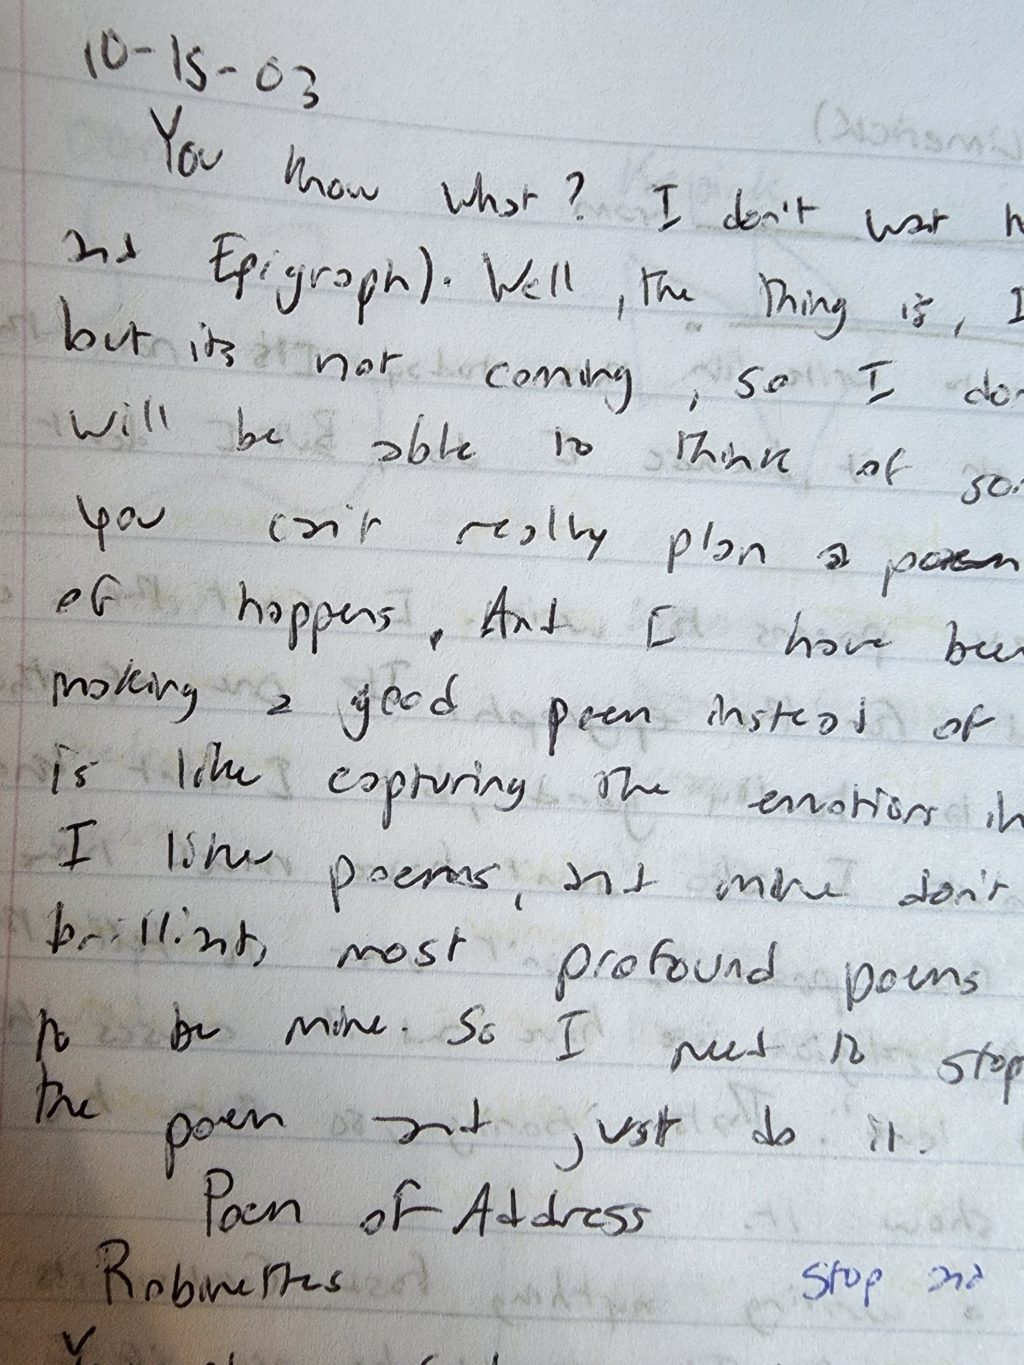 10-15-03
You know what? I don't want
and Epigraph). Well, the thing is, I
but its not coming, so I
will be able to think of
you can't really plan a poem
of happens. And I have been
making a good poem instead of
is like capturing the emotions in
I like poems, and mine don't
brilliant, most profound poems
to be mine. So I need to stop
the poem and just do it.
Poem of Address
Robinettes
Stop and